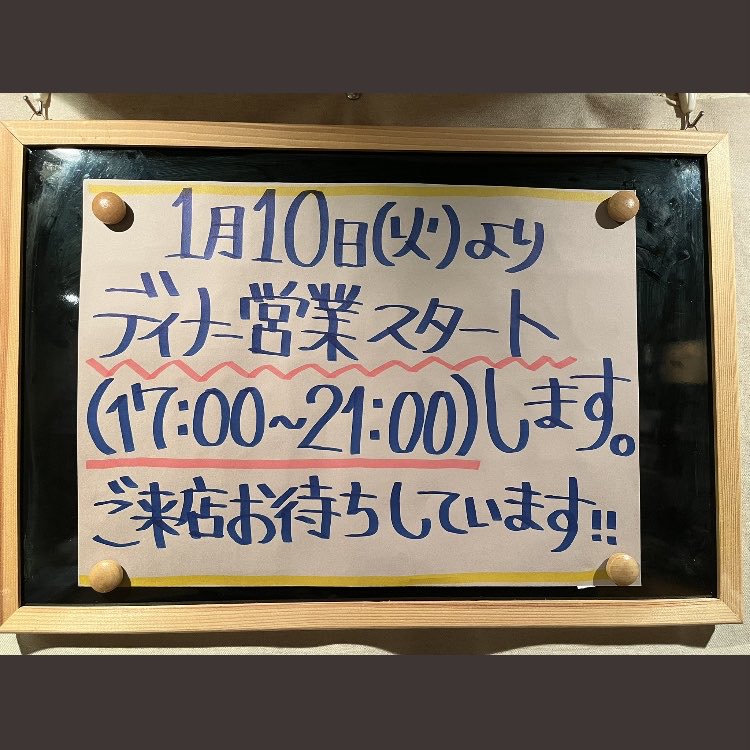 1月10日(火)より
ディナー営業スタート
(17:00~21:00)します。
ご来店お待ちしています!!